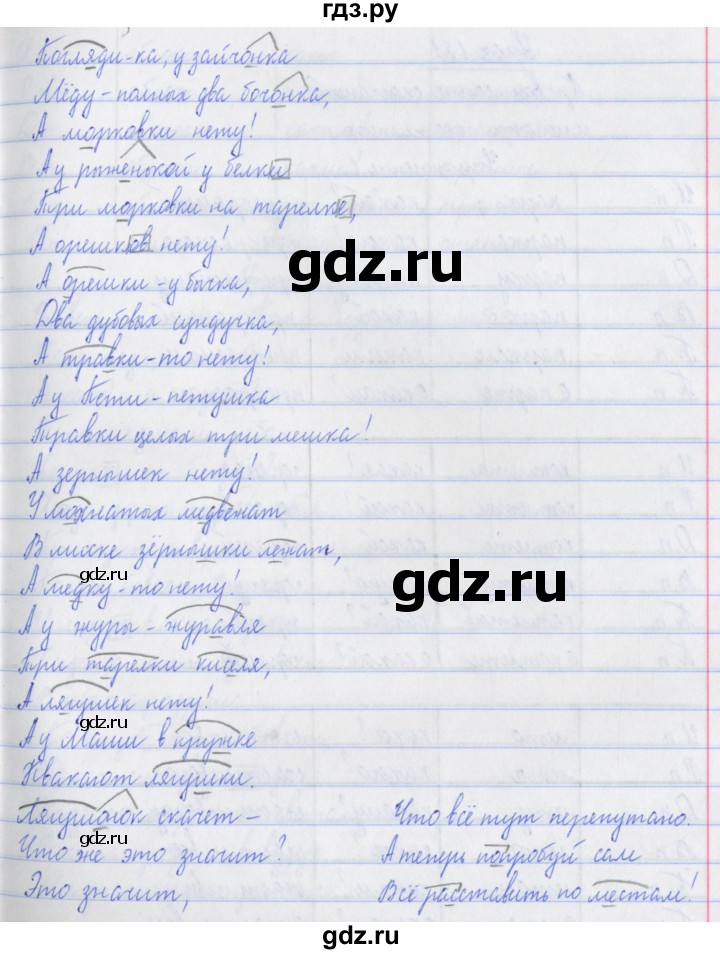 гдз.ру
Погляди-ка, у зайчонка
Мёду - полных два бочонка,
А морковки нету!
А у рыженькой у белки
Три морковки на тарелке,
А орешков нету!
gdz.ru
А орешки - у бычка,
Два дубовых сундучка,
А травки-то нету!
gdz.ru
А у Пети - петушка
Травки целых три мешка!
А зернышек нету!
У мохнатых медвежат
В миске зёрнышки лежат,
gdz.ru
А медку-то нету!
gdz.ru
А у журы - журавля
Три тарелки киселя,
А лягушек нету!
gdz.ru
А у Маши в кружке
Квакают лягушки.
Лягушонок скачет -
Что же это значит?
gdz.ru
Это значит,
Что всё тут перепутано.
А теперь попробуй сам
Всё расставить по местам!
gdz.ru